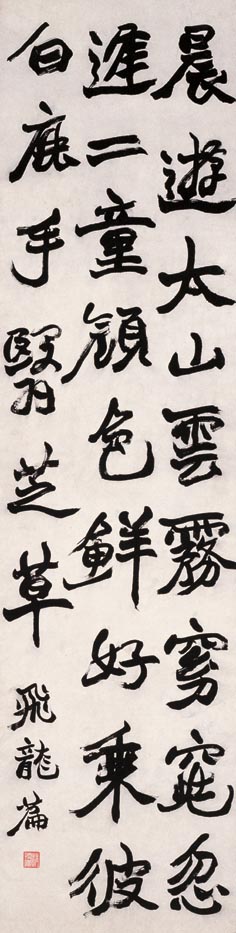 晨遊太山雲霧窈窕忽
遅二童顔色鮮好乘彼
白鹿手翳芝草
飛龍篇